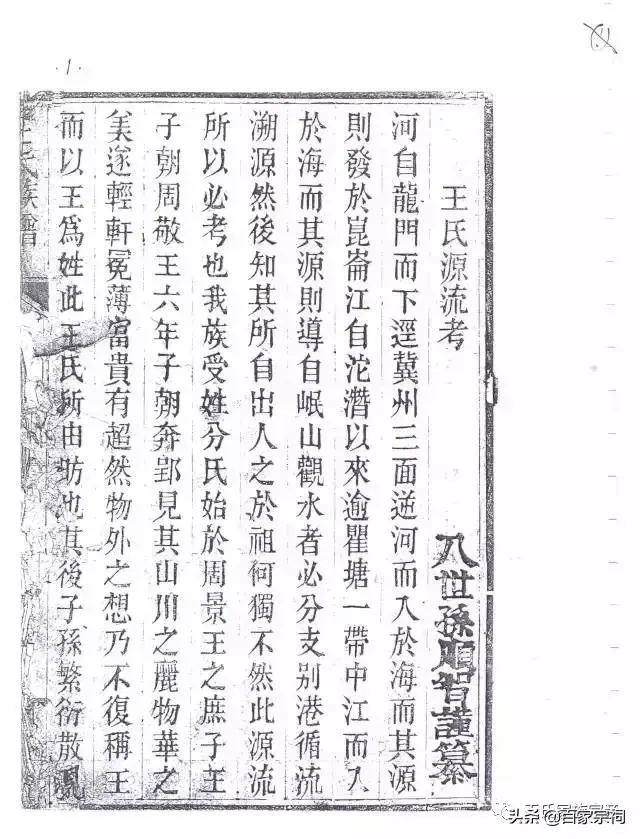 王氏源流考
八世孫順智謹纂
河自龍門而下逕冀州三面逆河而入於海而其源
則發於崑崙江自沱潛以來逾瞿塘一帶中江而入
於海而其源則導自岷山觀水者必分支别港循流
溯源然後知其所自出人之於祖何獨不然此源流
所以必考也我族受姓分氏始於周景王之庶子王
子朝周敬王六年子朝奔郢見其山川之麗物華之
美遂輕軒冕薄富貴有超然物外之想乃不復稱王
而以王爲姓此王氏所由昉也其後子孫繁衍散處
王氏族譜
1
头条 @百家宗祠